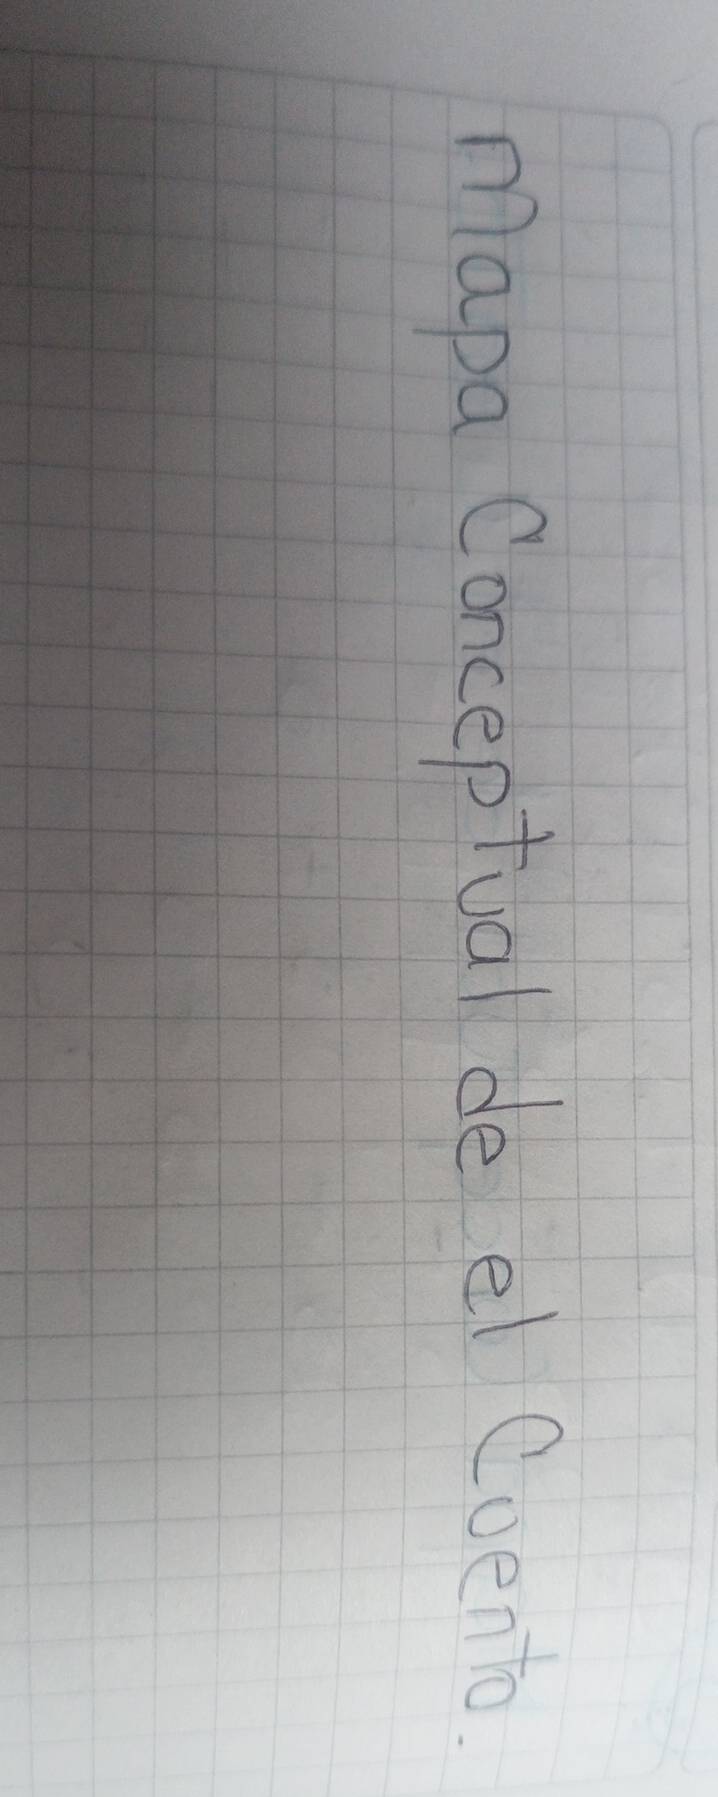 Mapa Conceptual de el Cuento.